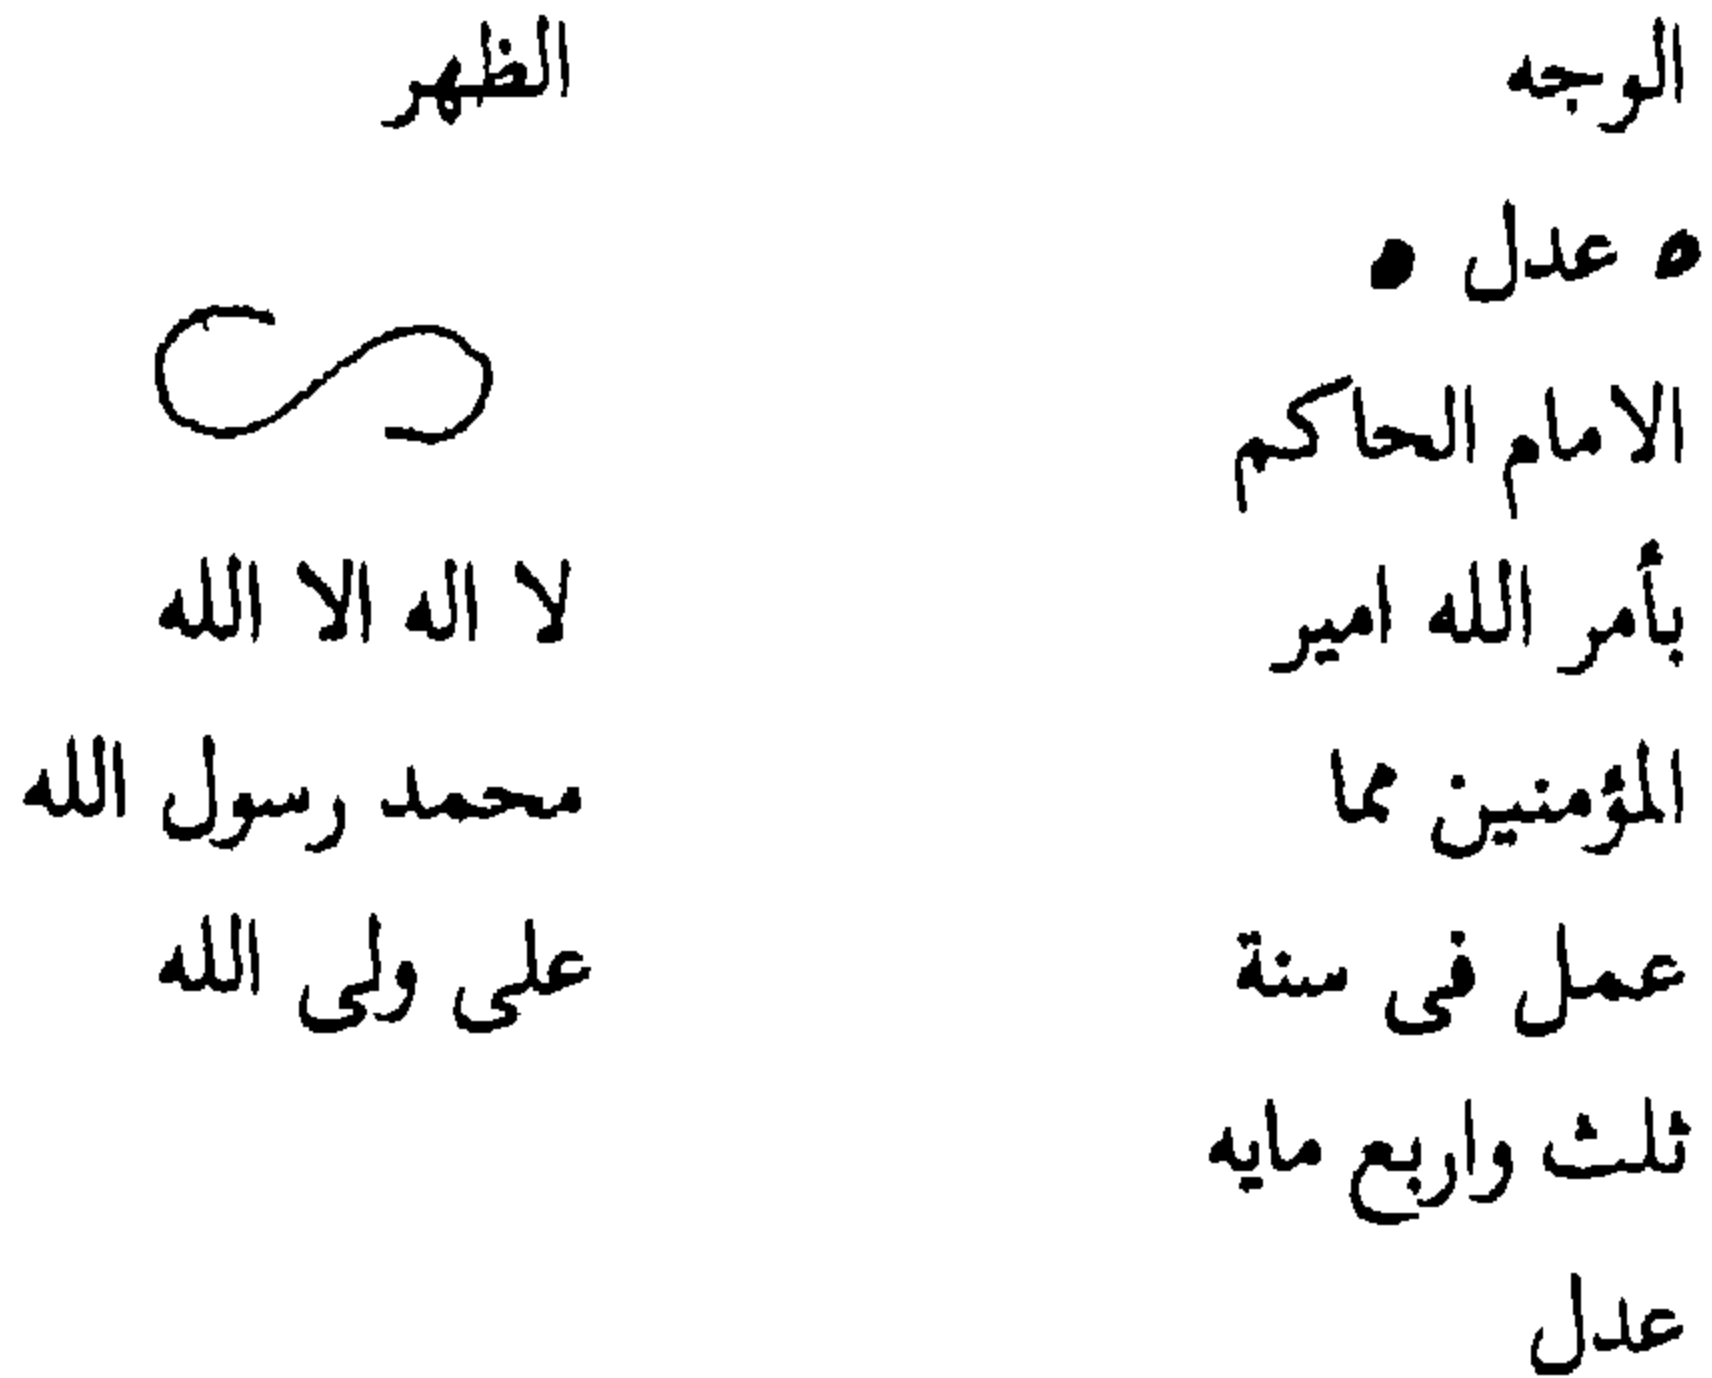 الوجه
ه عدل •
الامام الحاكم
بأمر الله امير
المؤمنين مما
عمل فى سنة
ثلث واربع مايه
عدل
الظهر
لا اله الا الله
محمد رسول الله
على ولى الله